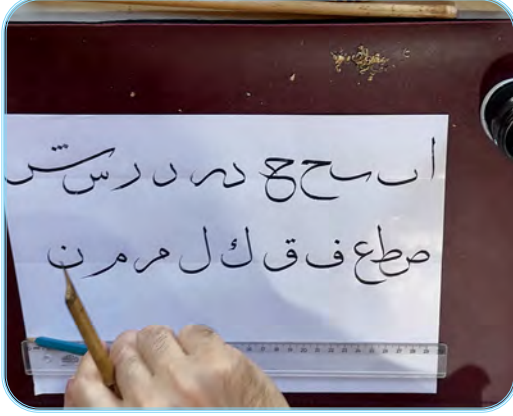 ا ب ح ح در د ر س ش
صطع ف ق ك ل مر م ن